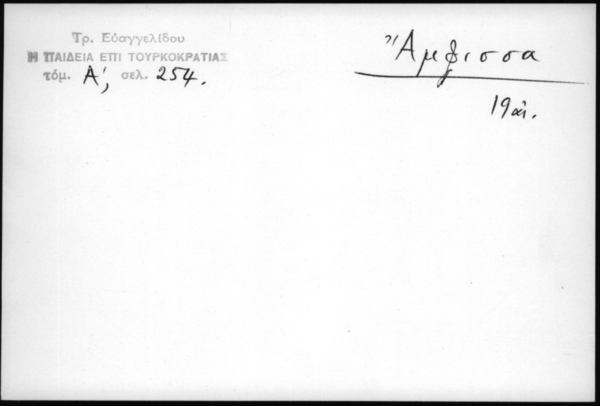 Τρ. Εὐαγγελίδου
Η ΠΑΙΔΕΙΑ ΕΠΙ ΤΟΥΡΚΟΚΡΑΤΙΑΣ
τόμ. Α', σελ. 254.
Ἄμφισσα
19 αἰ.